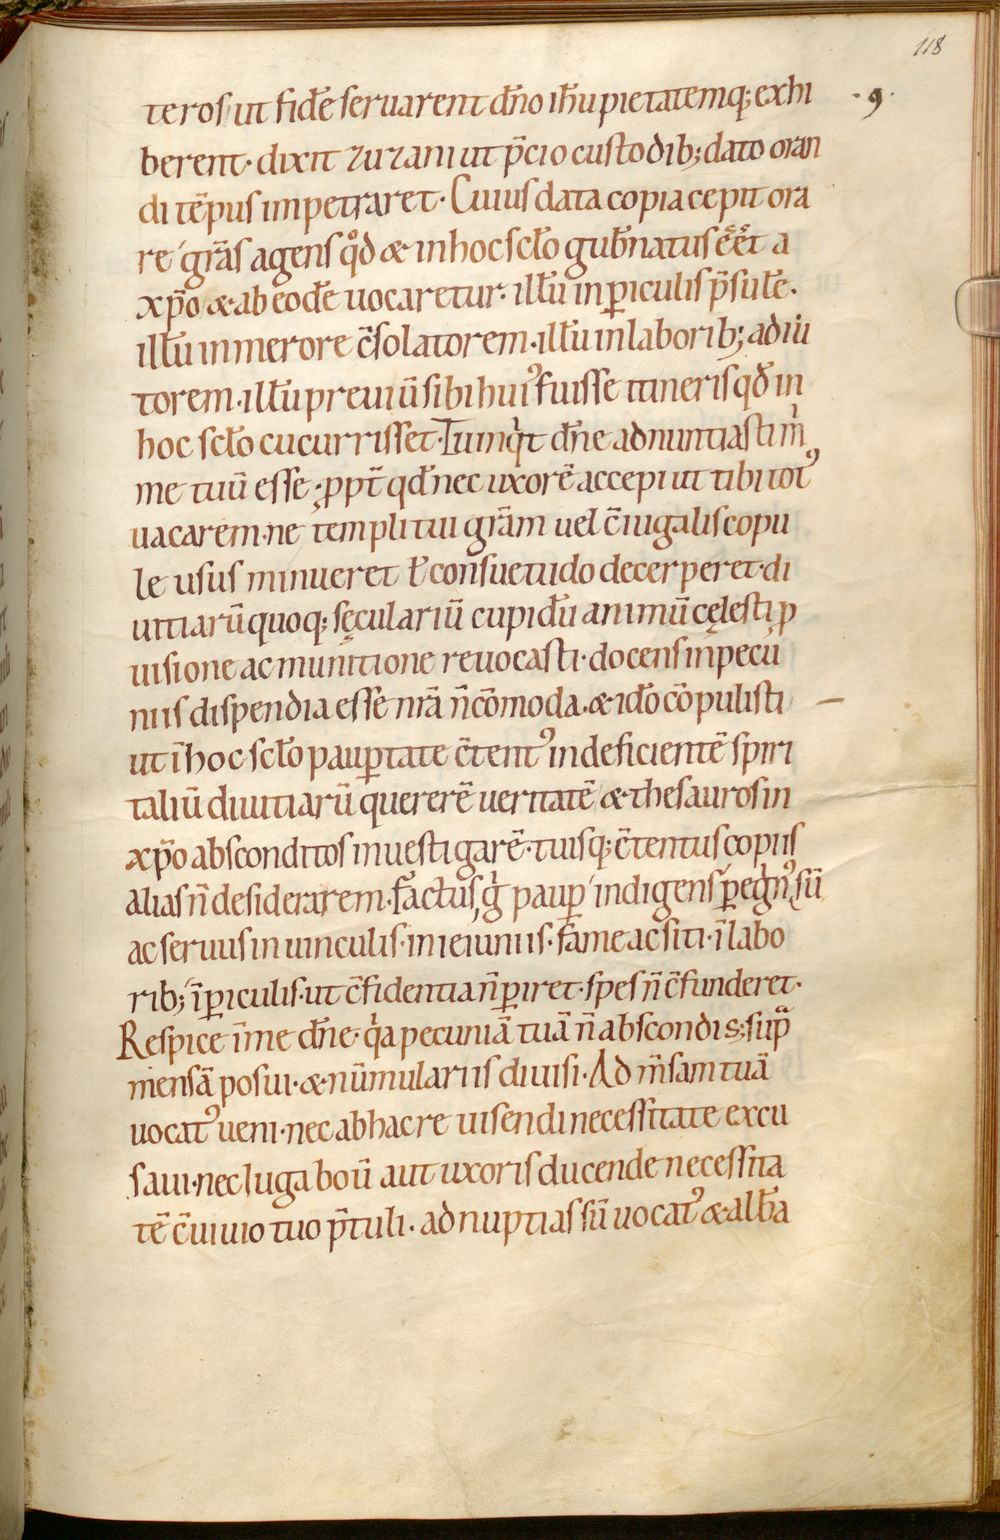 118
teros ut fidē seruarent dn̄o ih̄u pietatemq; exhi · 9 ·
berent· dixit zuzani ut p̄cio custodib; dato oran
di tēpus impetraret· Cuius data copia cepit ora
re gr̄as agens qd̊ & in hoc scl̄o gub̄natus eēt a
xp̄o & ab eodē uocaretur· illū in ꝑiculis p̄sulē·
illū in merore c̄solatorem· illū in laborib; adiu
torem· illū preuiū sibi huiꝰ fuisse itineris qd̄ in
hoc scl̄o cucurrisset· Tu inqͥt dn̄e adnuntiasti mͥ
me tuū esse; ꝓpt̄ qd̄ nec uxorē accepi ut tibi totꝰ
uacarem· ne templi tui gr̄am uel c̄iugalis copu
le usus minueret ł consuetudo decerperet· di
uitiarū quoq; sęculariū cupidū animū cęlesti ꝓ
uisione ac munitione reuocasti· docens in pecu
niis dispendia esse nr̄a n̄ cōmoda· & idō cōpulisti –
ut ī hoc scl̄o pauꝑtate c̄tentꝰ indeficientē spiri
taliū diuitiarū quererē ueritatē & thesauros in
xp̄o absconditos inuestigarē· tuisq; c̄tentus copiis
alias n̄ desiderarem· factus gͥ pauꝑ indigens ꝑegͥnꝰ sū
ac seruus in uinculis· in ieiuniis· fame ac siti· ī labo
rib; ī ꝑiculis· ut c̄fidentia n̄ ꝑiret· spes n̄ c̄funderet·
Respice ī me dn̄e· qͥa pecuniā tuā n̄ abscondi s; sup̄
mensā posui· & nūmulariis diuisi· Ad m̄sam tuā
uocatꝰ ueni· nec ab hac re uisendi necessitate excu
saui· nec iuga boū aut uxoris ducende necessita
tē c̄uiuio tuo p̄tuli· ad nuptias sū uocatꝰ & alba